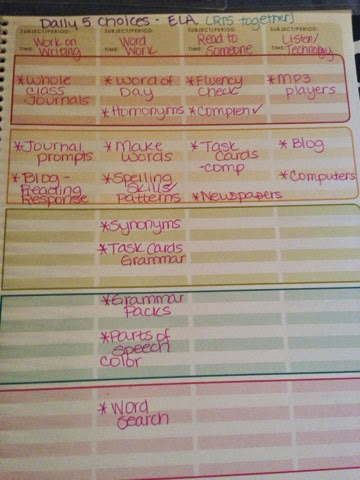 Daily 5 Choices - ELA (RTS together)
SUBJECT/PERIOD: SUBJECT/PERIOD: SUBJECT/PERIOD: SUBJECT/PERIOD:
TIME: Work on Writing
TIME: Word Work
TIME: Read to Someone
TIME: Listen/Technology
*Whole Class Journals
*Word of Day
*Homonyms
*Fluency Check
*Compreh✓
*MP3 players
*Journal prompts
*Blog - Reading Response
*Make Words
*Spelling Skills/Patterns
*Task Cards -comp
*Newspapers
*Blog
*Computers
*Synonyms
*Task Cards Grammar
*Grammar Packs
*Parts of Speech Color
*Word Search